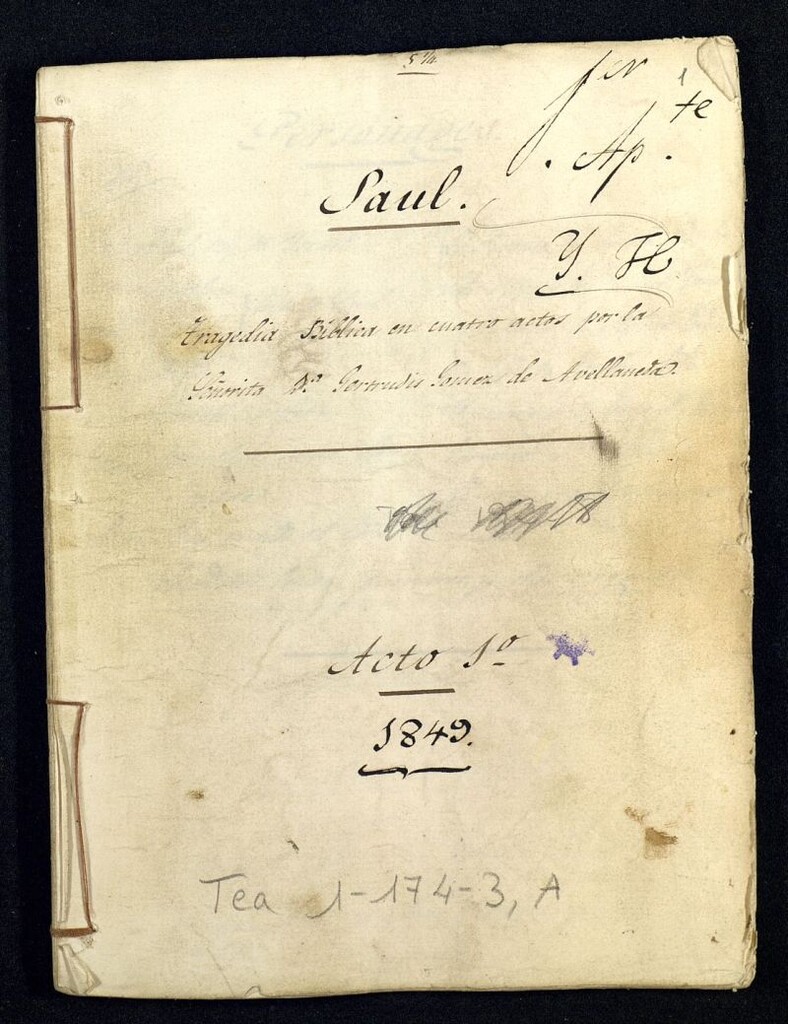 1er
1
Ap.te
Saul.
Y. H
Tragedia Biblica en cuatro actos por la
Señorita D.ª Gertrudis Gomez de Avellaneda.
Acto 1º
1849.
Tea 1-174-3, A